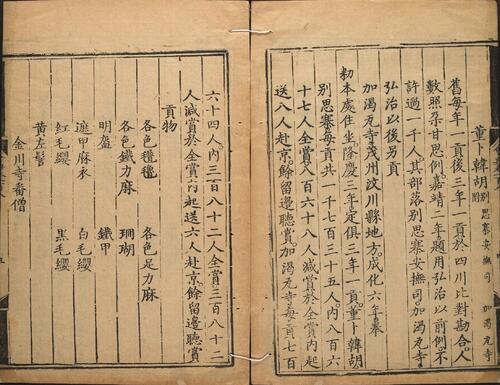 董卜韓胡 別思寨安撫司 加渴瓦寺
舊每年一貢後三年一貢於四川比對勘合人
數照杂甘思例嘉靖二年題用弘治以前例不
許過一千人其部落別思寨安撫司加渴瓦寺
弘治以後另貢
加渴瓦寺茂州汶川縣地方成化六年奏
勑本處住坐隆慶三年定俱三年一貢董卜韓胡
別思寨每貢共一千七百三十五人內八百六
十七人全賞八百六十八人減賞於全賞內起
送八人赴京餘留邊聽賞加渴瓦寺每貢七百
六十四人內三百八十二人全賞三百八十二
人減賞於全賞內起送六人赴京餘留邊聽賞
貢物
各色氆氌 各色足力麻
各色鐵力麻 珊瑚
明盔 鐵甲
遮甲麻衣 白毛纓
紅毛纓 黑毛纓
黃左髻
金川寺番僧